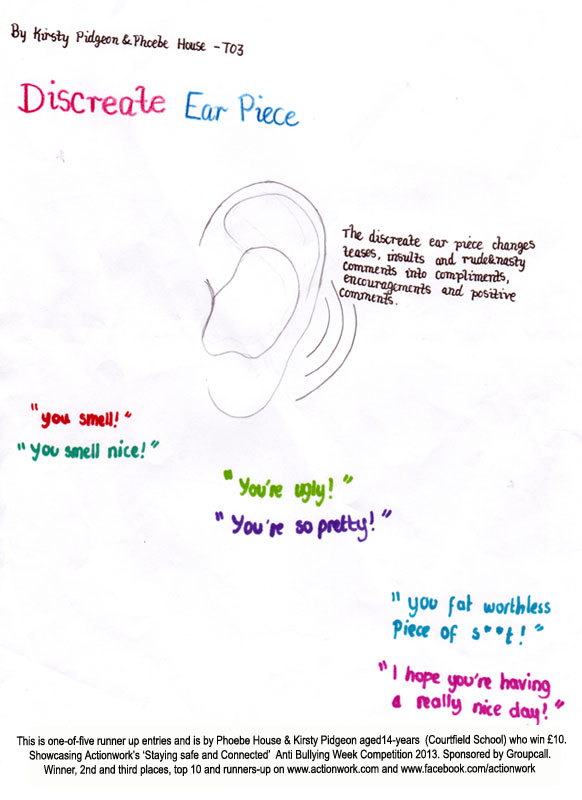 By Kirsty Pidgeon & Phoebe House - T03
Discreate Ear Piece
The discreate ear piece changes
teases, insults and rude&nasty
comments into compliments,
encouragements and positive
comments.
"you smell!"
"You smell nice!"
"You're ugly!"
"You're so pretty!"
"you fat worthless
Piece of s**t!"
"I hope you're having
a really nice day!"
This is one-of-five runner up entries and is by Phoebe House & Kirsty Pidgeon aged14-years (Courtfield School) who win £10.
Showcasing Actionwork's 'Staying safe and Connected' Anti Bullying Week Competition 2013. Sponsored by Groupcall.
Winner, 2nd and third places, top 10 and runners-up on www.actionwork.com and www.facebook.com/actionwork